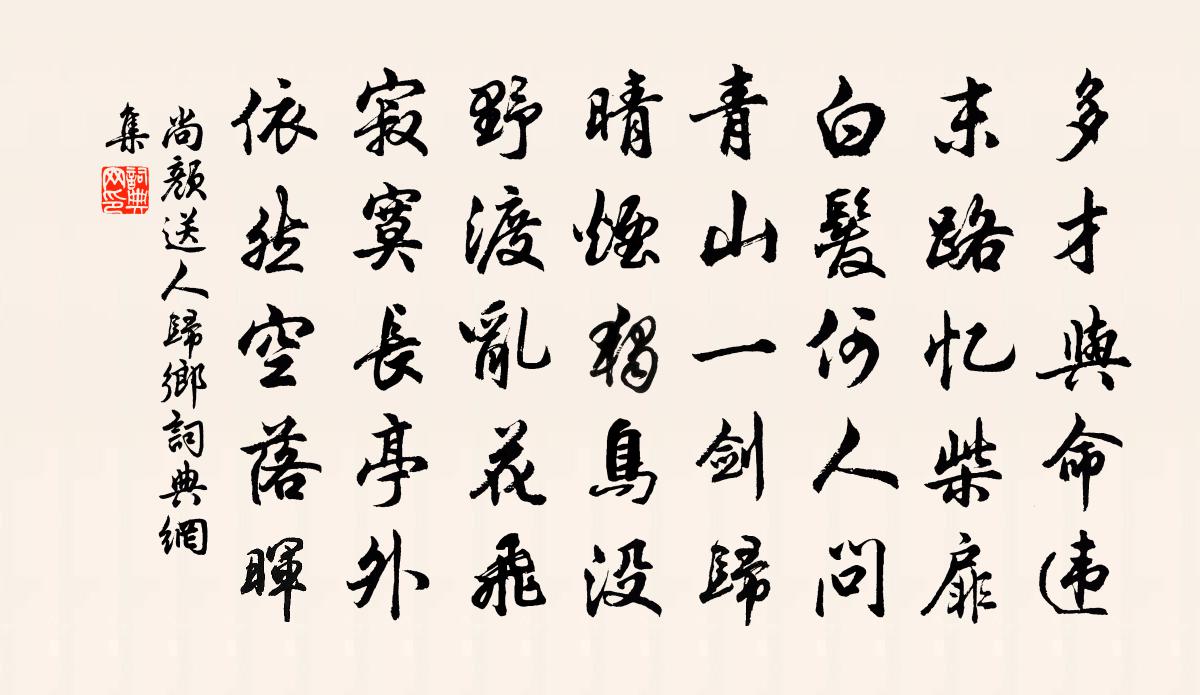 多才與命违
末路忆柴扉
白髮何人问
青山一剑歸
晴煙獨鳥没
野渡亂花飛
寂寞長亭外
依然空落暉
尚顏送人歸鄉詞典網
集
詞典网印